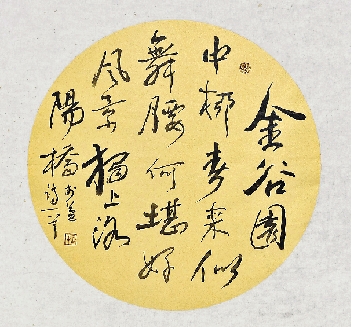 金谷園
中柳春来似
舞腰何堪好
风景獨上洛
陽橋